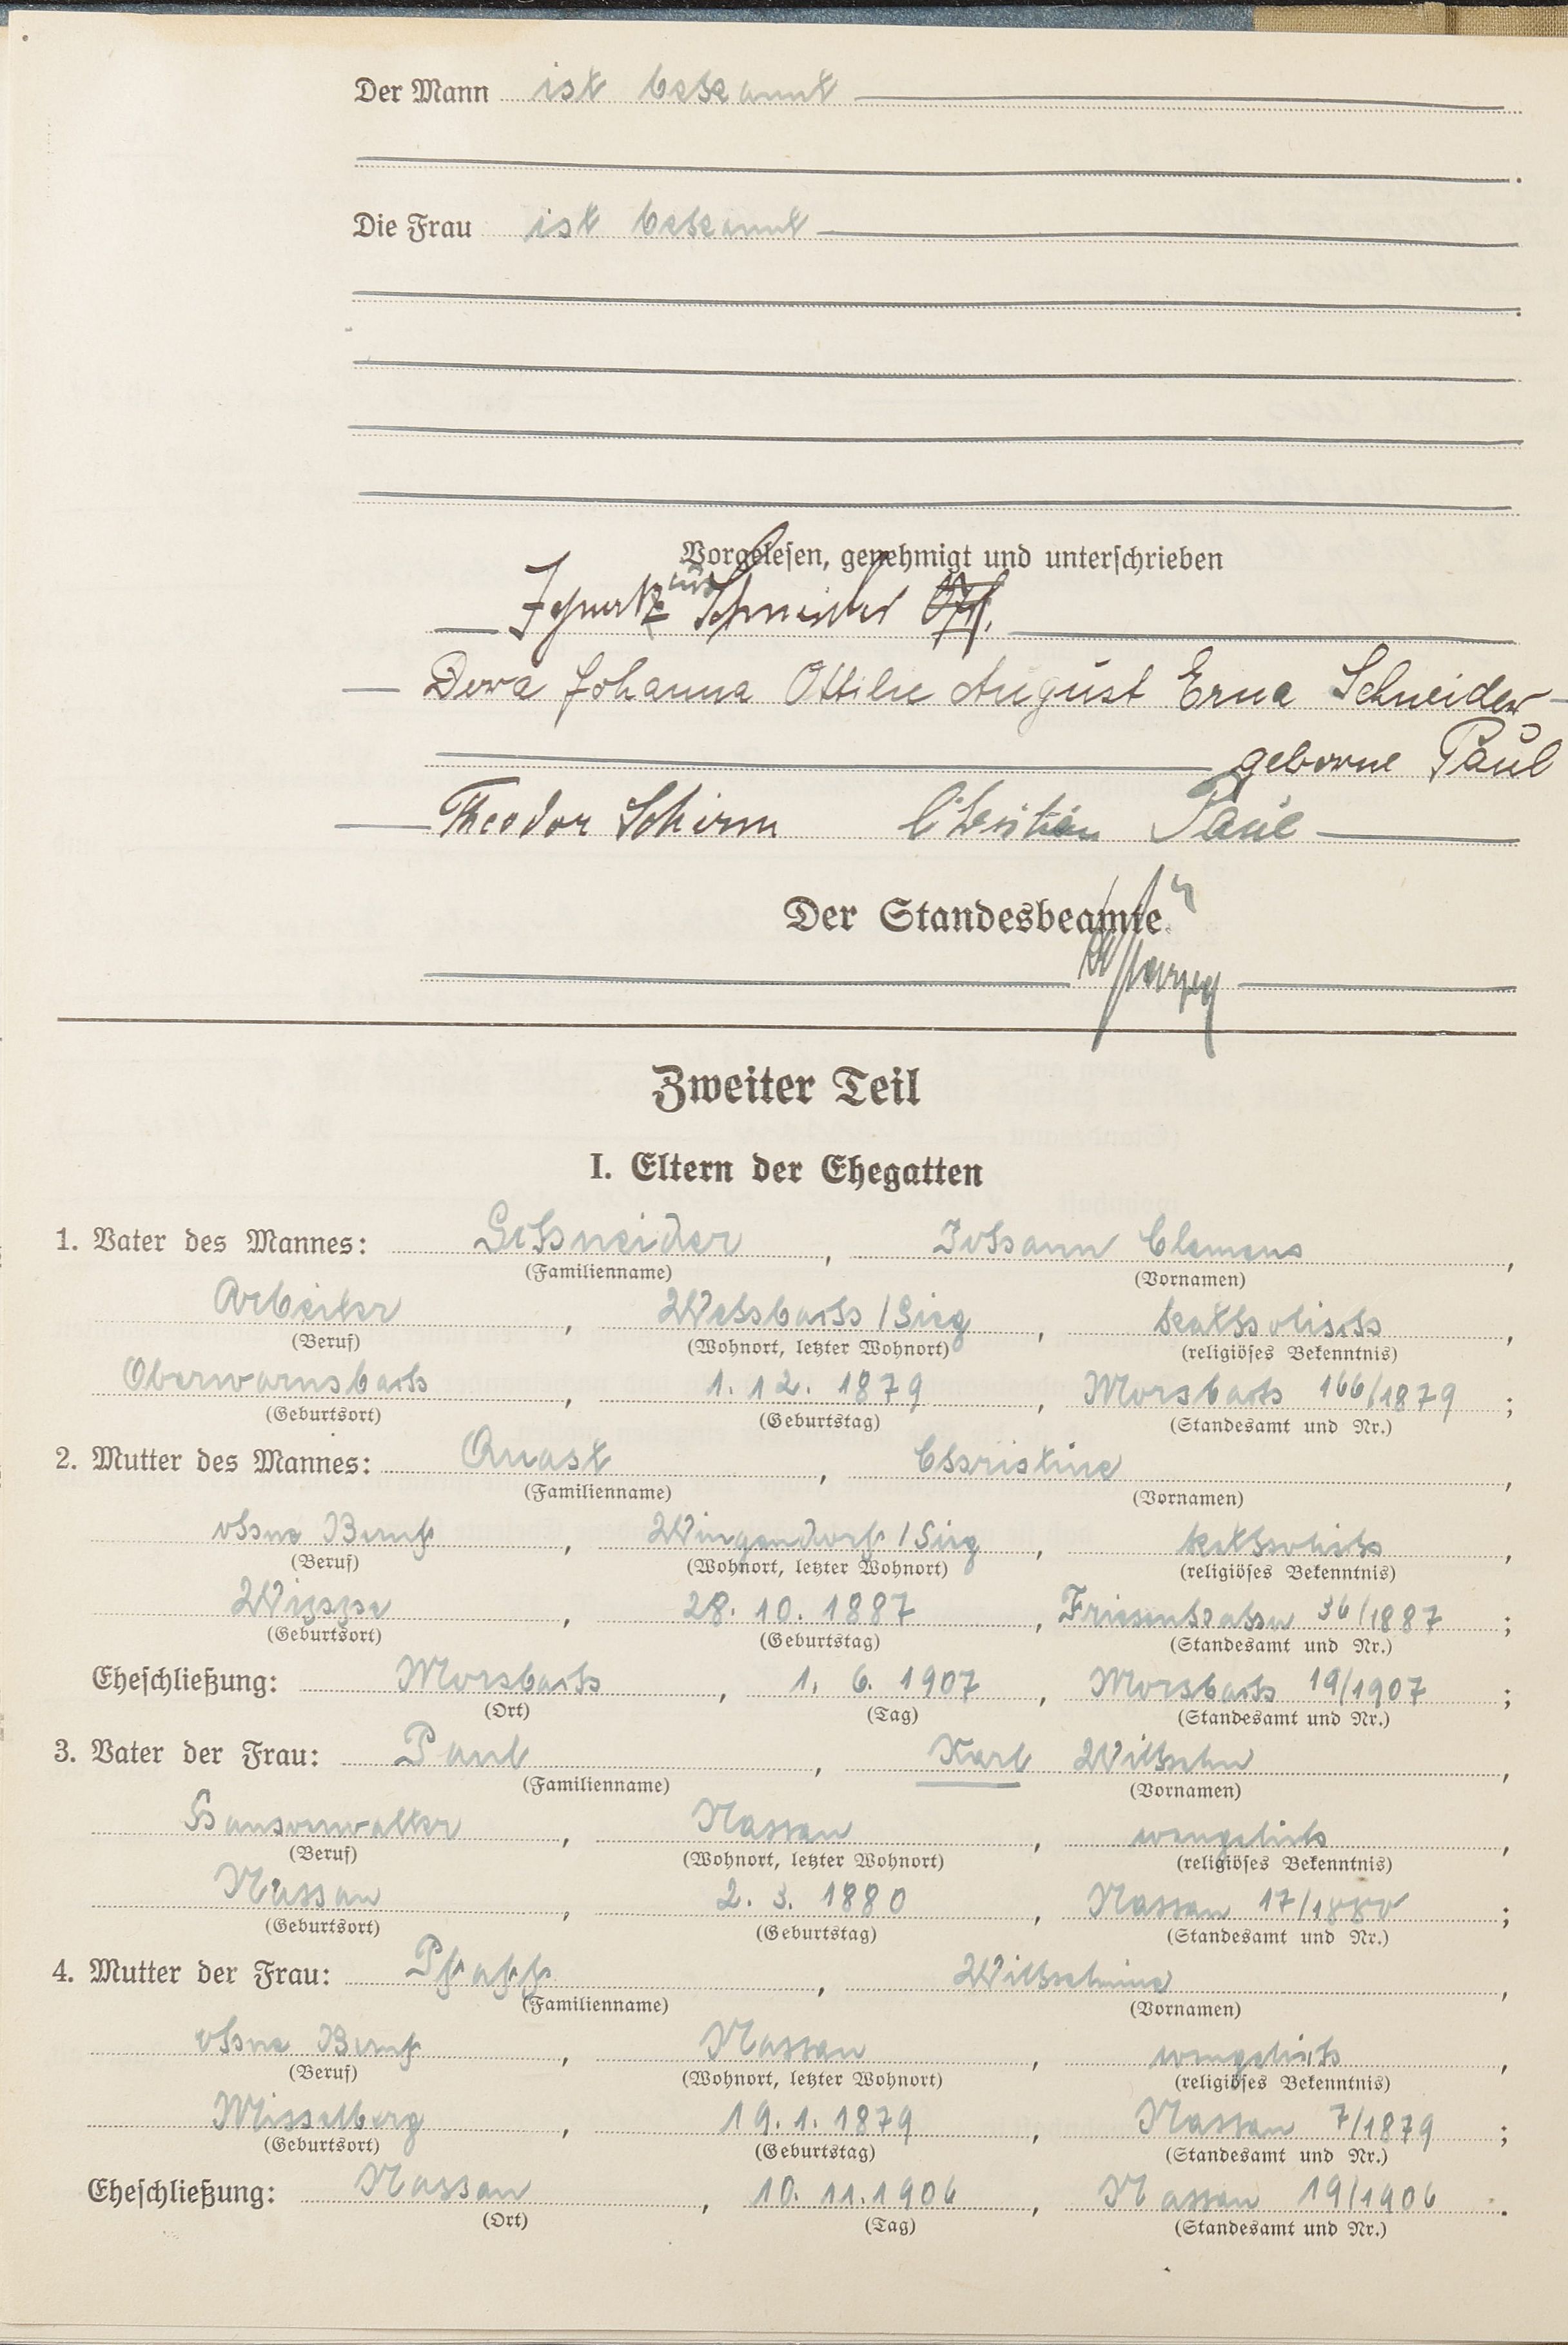 Der Mann ist bekannt
Die Frau ist bekannt
Vorgelesen, genehmigt und unterschrieben
Schneider
Dora Johanna Ottilie August Erna Schneider
geborne Paul
Theodor Schirm Christian Paul
Der Standesbeamte
Zweiter Teil
I. Eltern der Ehegatten
1. Vater des Mannes: Schneider, Johann Clemens,
(Familienname) (Vornamen)
Arbeiter, Wehbach/Sieg, katholisch,
(Beruf) (Wohnort, letzter Wohnort) (religiöses Bekenntnis)
Oberwarnsbach, 1.12. 1879, Morsbach 166/1879;
(Geburtsort) (Geburtstag) (Standesamt und Nr.)
2. Mutter des Mannes: Quast, Christine,
(Familienname) (Vornamen)
ohne Beruf, Wingendorf/Sieg, katholisch,
(Beruf) (Wohnort, letzter Wohnort) (religiöses Bekenntnis)
Wippe, 28. 10. 1887, Friesenhahn 36/1887;
(Geburtsort) (Geburtstag) (Standesamt und Nr.)
Eheschließung: Morsbach, 1. 6. 1907, Morsbach 19/1907;
(Ort) (Tag) (Standesamt und Nr.)
3. Vater der Frau: Paul, Karl Wilhelm,
(Familienname) (Vornamen)
Hausverwalter, Nassau, evangelisch,
(Beruf) (Wohnort, letzter Wohnort) (religiöses Bekenntnis)
Nassau, 2. 3. 1880, Nassau 17/1880;
(Geburtsort) (Geburtstag) (Standesamt und Nr.)
4. Mutter der Frau: Pfaff, Wilhelmine,
(Familienname) (Vornamen)
ohne Beruf, Nassau, evangelisch,
(Beruf) (Wohnort, letzter Wohnort) (religiöses Bekenntnis)
Misselberg, 19.1.1879, Nassau 7/1879;
(Geburtsort) (Geburtstag) (Standesamt und Nr.)
Eheschließung: Nassau, 10.11.1906, Nassau 19/1906.
(Ort) (Tag) (Standesamt und Nr.)